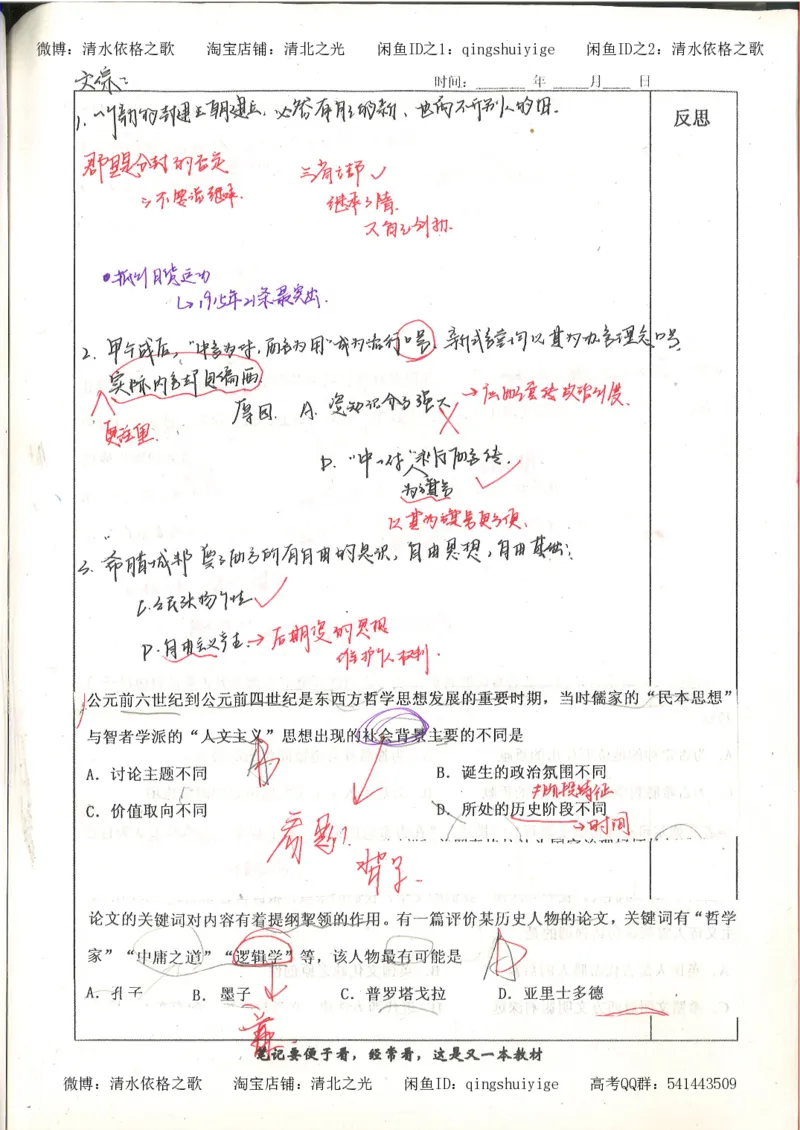 微博：清水依格之歌 淘宝店铺：清北之光 闲鱼ID之1：qingshuiyige 闲鱼ID之2：清水依格之歌
文综：
时间： 年 月 日
反思
1. 一个新的封建王朝建立，必然有自己的新，也离不开别人的旧．
郡县是分封制的否定
→不要谈继承．
三省六部✓
继承了隋．
又自己创初．
•抵制日货运动
↳1915年21条最突出．
2. 甲午战后，“中学为体，西学为用”成为流行口号，新式学堂何以其为办学理念口号
实际内学却更偏西
更注重．
原因 A. 资知识分子强大
D. “中体”利于西学传．
为旗号
以其为旗号更方便．
3. 希腊城邦 是西方所有自由的意识，自由思想，自由基础：
C.公民张扬个性
D.自由主义产生→后期资的思想
维护个人权利．
公元前六世纪到公元前四世纪是东西方哲学思想发展的重要时期，当时儒家的“民本思想”
与智者学派的“人文主义”思想出现的社会背景主要的不同是
A．讨论主题不同 B．诞生的政治氛围不同
≠阶段特征
C．价值取向不同 D．所处的历史阶段不同
→时间
看题！
论文的关键词对内容有着提纲挈领的作用。有一篇评价某历史人物的论文，关键词有“哲学
家”“中庸之道”“逻辑学”等，该人物最有可能是
A．孔子 B．墨子 C．普罗塔戈拉 D．亚里士多德
笔记要便于看，经常看，这是又一本教材
微博：清水依格之歌 淘宝店铺：清北之光 闲鱼ID：qingshuiyige 高考QQ群：541443509